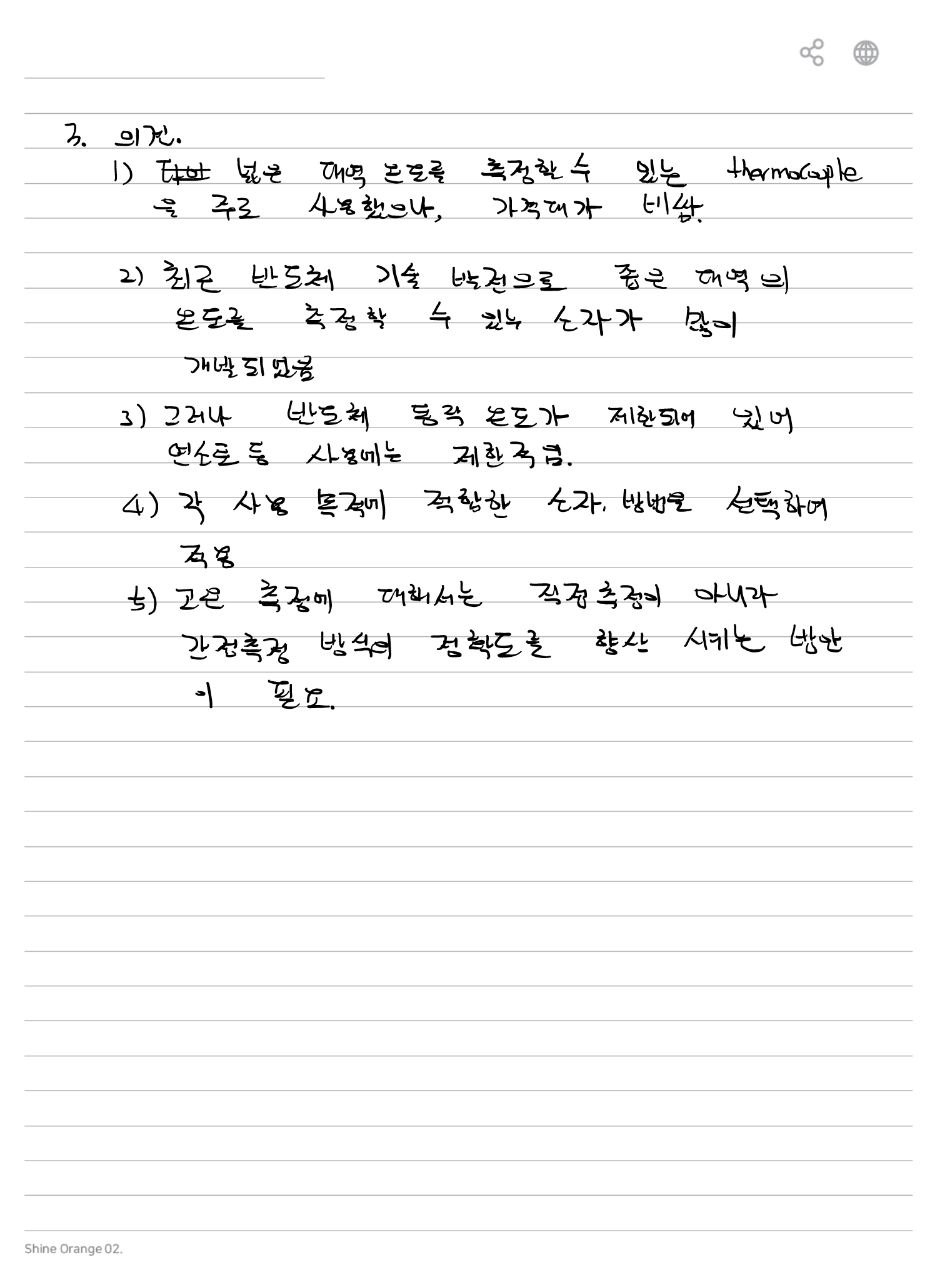 3. 의견.
1) 넓은 대역 온도를 측정할 수 있는 thermocouple
을 주로 사용했으나, 가격대가 비쌈.
2) 최근 반도체 기술 발전으로 좁은 대역의
온도를 측정할 수 있는 소자가 많이
개발되었음
3) 그러나 반도체 동작 온도가 제한되어 있어
연소로 등 사용에는 제한적임.
4) 각 사용 목적에 적합한 소자, 방법을 선택하여
적용
5) 고온 측정에 대해서는 직접측정이 아니라
간접측정 방식의 정확도를 향상 시키는 방안
이 필요.
Shine Orange 02.